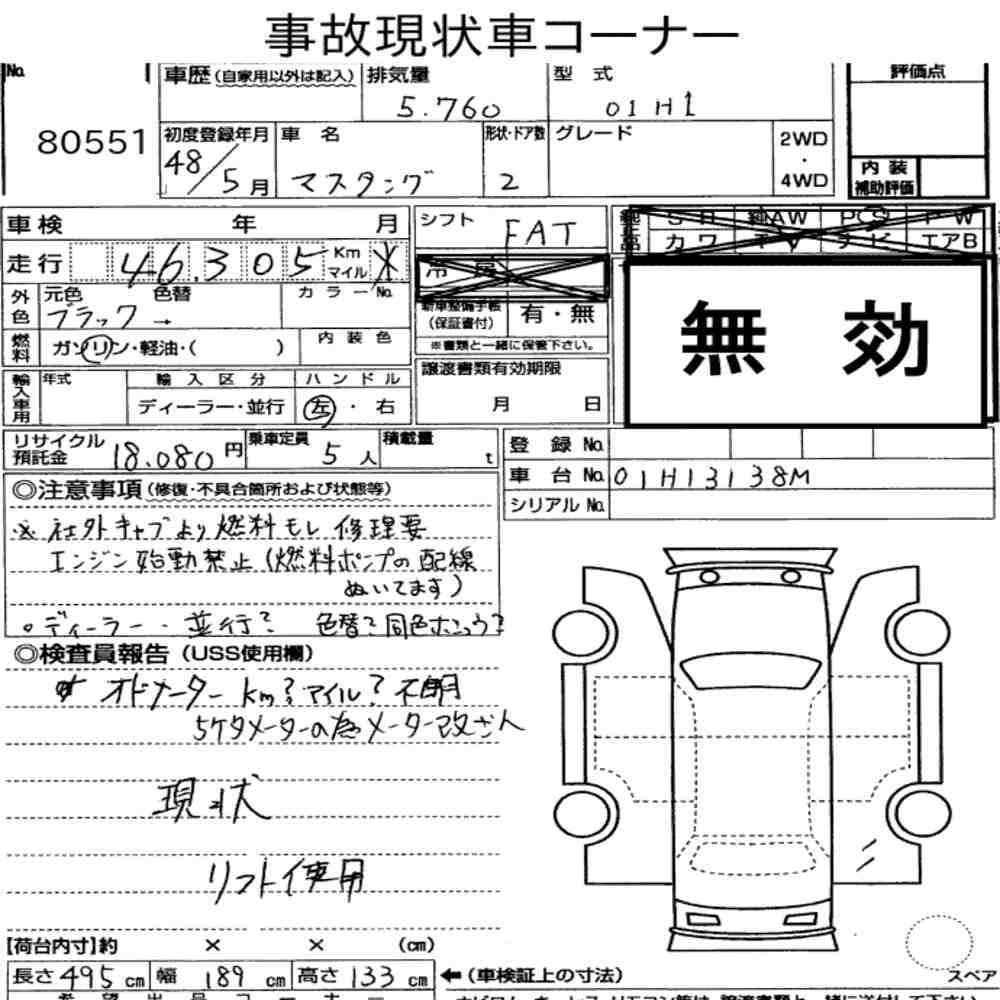 事故現状車コーナー
No. 80551
車歴(自家用以外は記入) 排気量 5.760 型式 01H1 評価点
初度登録年月 48/5月 車名 マスタング 形状・ドア数 2 グレード 2WD・4WD
内装補助評価
車検 年 月 シフト FAT
走行 46.305 Km マイル ※
冷房
外色 元色 ブラック 色替 → カラーNo.
新車整備手帳(保証書付) 有・無
※書類と一緒に保管下さい。
燃料 ガソリン・軽油・( ) 内装色
輸入車用 年式 輸入区分 ディーラー・並行 ハンドル 左・右
譲渡書類有効期限 月 日
純正品 SR 純AW PS PW
カワ TV ナビ エアB
無効
リサイクル預託金 18.080円 乗車定員 5人 積載量 t
登録No.
車台No. 01H13138M
シリアルNo.
◎注意事項(修復・不具合箇所および状態等)
※社外キャブより燃料モレ 修理要
エンジン始動禁止(燃料ポンプの配線
ぬいてます)
○ディーラー・並行? 色替?同色ホコウ?
◎検査員報告(USS使用欄)
オドメーター km?マイル?不明
5ケタメーターの為メーター改ざん
現状
リフト使用
【荷台内寸】約 × × (cm)
長さ 495 cm 幅 189 cm 高さ 133 cm ←(車検証上の寸法)
スペア